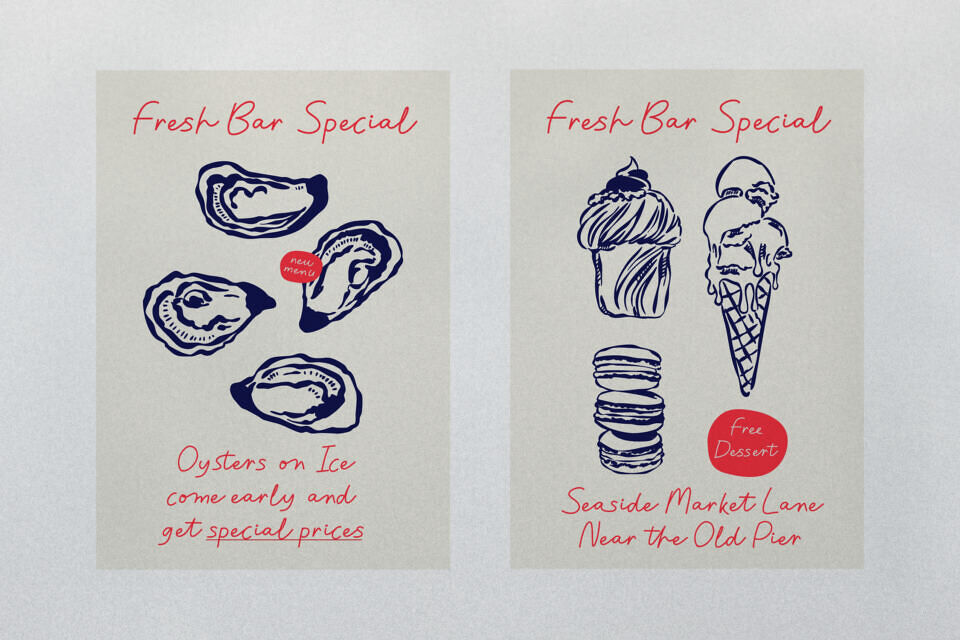 Fresh Bar Special
new
menu
Oysters on Ice
come early and
get special prices
Fresh Bar Special
Free
Dessert
Seaside Market Lane
Near the Old Pier